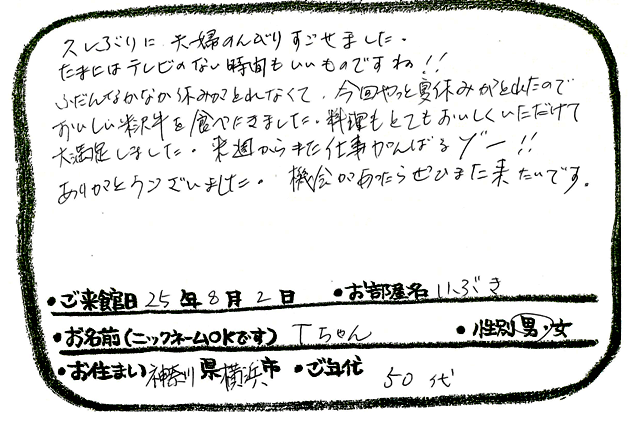 久しぶりに夫婦のんびりすごせました。
たまにはテレビのない時間もいいものですね!!
ふだんなかなか休みがとれなくて、今回やっと夏休みがとれたので
おいしい米沢牛を食べにきました。料理もとてもおいしくいただけて
大満足しました。来週からまた仕事がんばるゾー!!
ありがとうございました。機会があったらぜひまた来たいです。
・ご来館日 25年8月2日 ・お部屋名 いぶき
・お名前(ニックネームOKです) Tちゃん ・性別 男・女
・お住まい 神奈川県横浜市 ・ご年代 50代